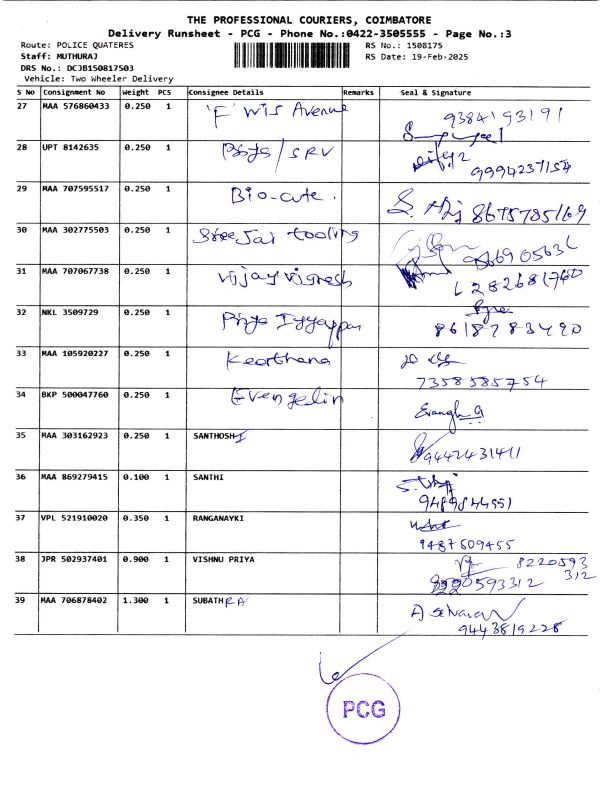 THE PROFESSIONAL COURIERS, COIMBATORE
Delivery Runsheet - PCG - Phone No.:0422-3505555 - Page No.:3
Route: POLICE QUATERES RS No.: 1508175
Staff: MUTHURAJ RS Date: 19-Feb-2025
DRS No.: DCJB150817503
Vehicle: Two Wheeler Delivery
S No Consignment No Weight PCS Consignee Details Remarks Seal & Signature
27 MAA 576860433 0.250 1 'F' WIS Avenue 9384193191
28 UPT 8142635 0.250 1 / SRV
9994237154
29 MAA 707595517 0.250 1 Bio-cute. 8675785169
30 MAA 302775503 0.250 1 Sree Jai tooling
31 MAA 707067738 0.250 1 Vijay Vignesh
32 NKL 3509729 0.250 1 Priya Iyyappan
8618783490
33 MAA 105920227 0.250 1 Keerthana
7358585754
34 BKP 500047760 0.250 1 Evengelin
35 MAA 303162923 0.250 1 SANTHOSH I
9442431411
36 MAA 869279415 0.100 1 SANTHI
9489844551
37 VPL 521910020 0.350 1 RANGANAYKI
9487509455
38 JPR 502937401 0.900 1 VISHNU PRIYA 8220593
312
39 MAA 706878402 1.300 1 SUBATH RA
9443819228
PCG